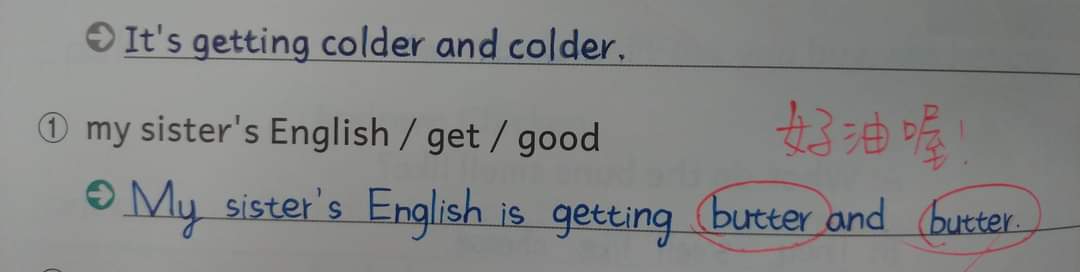 It's getting colder and colder.
① my sister's English / get / good
好油喔!
My sister's English is getting butter and butter.